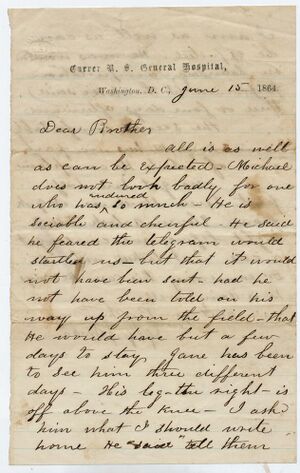 Carver U. S. General Hospital,
Washington, D. C., June 15 1864
Dear Brother
all is as well
as can be Expected – Michael
does not look badly for one
who was endured so much – He is
sociable and cheerful. He said
he feared the telegram would
startled us – but that it would
not have been sent – had he
not have been told on his
way up from the field – that
He would have but a few
days to stay. Jane has been
to see him three different
days – His leg – the right – is
off above the knee – I ask
him what I should write
home He "said" tell them